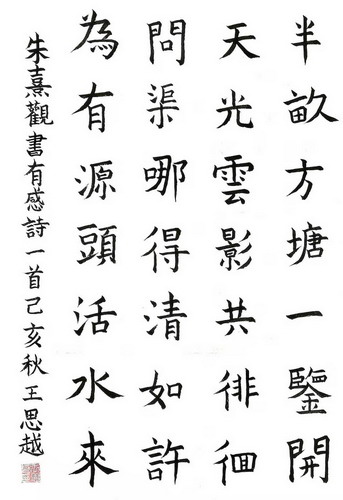 半畝方塘一鑒開
天光雲影共徘徊
問渠哪得清如許
為有源頭活水來
朱熹觀書有感詩一首己亥秋王思越